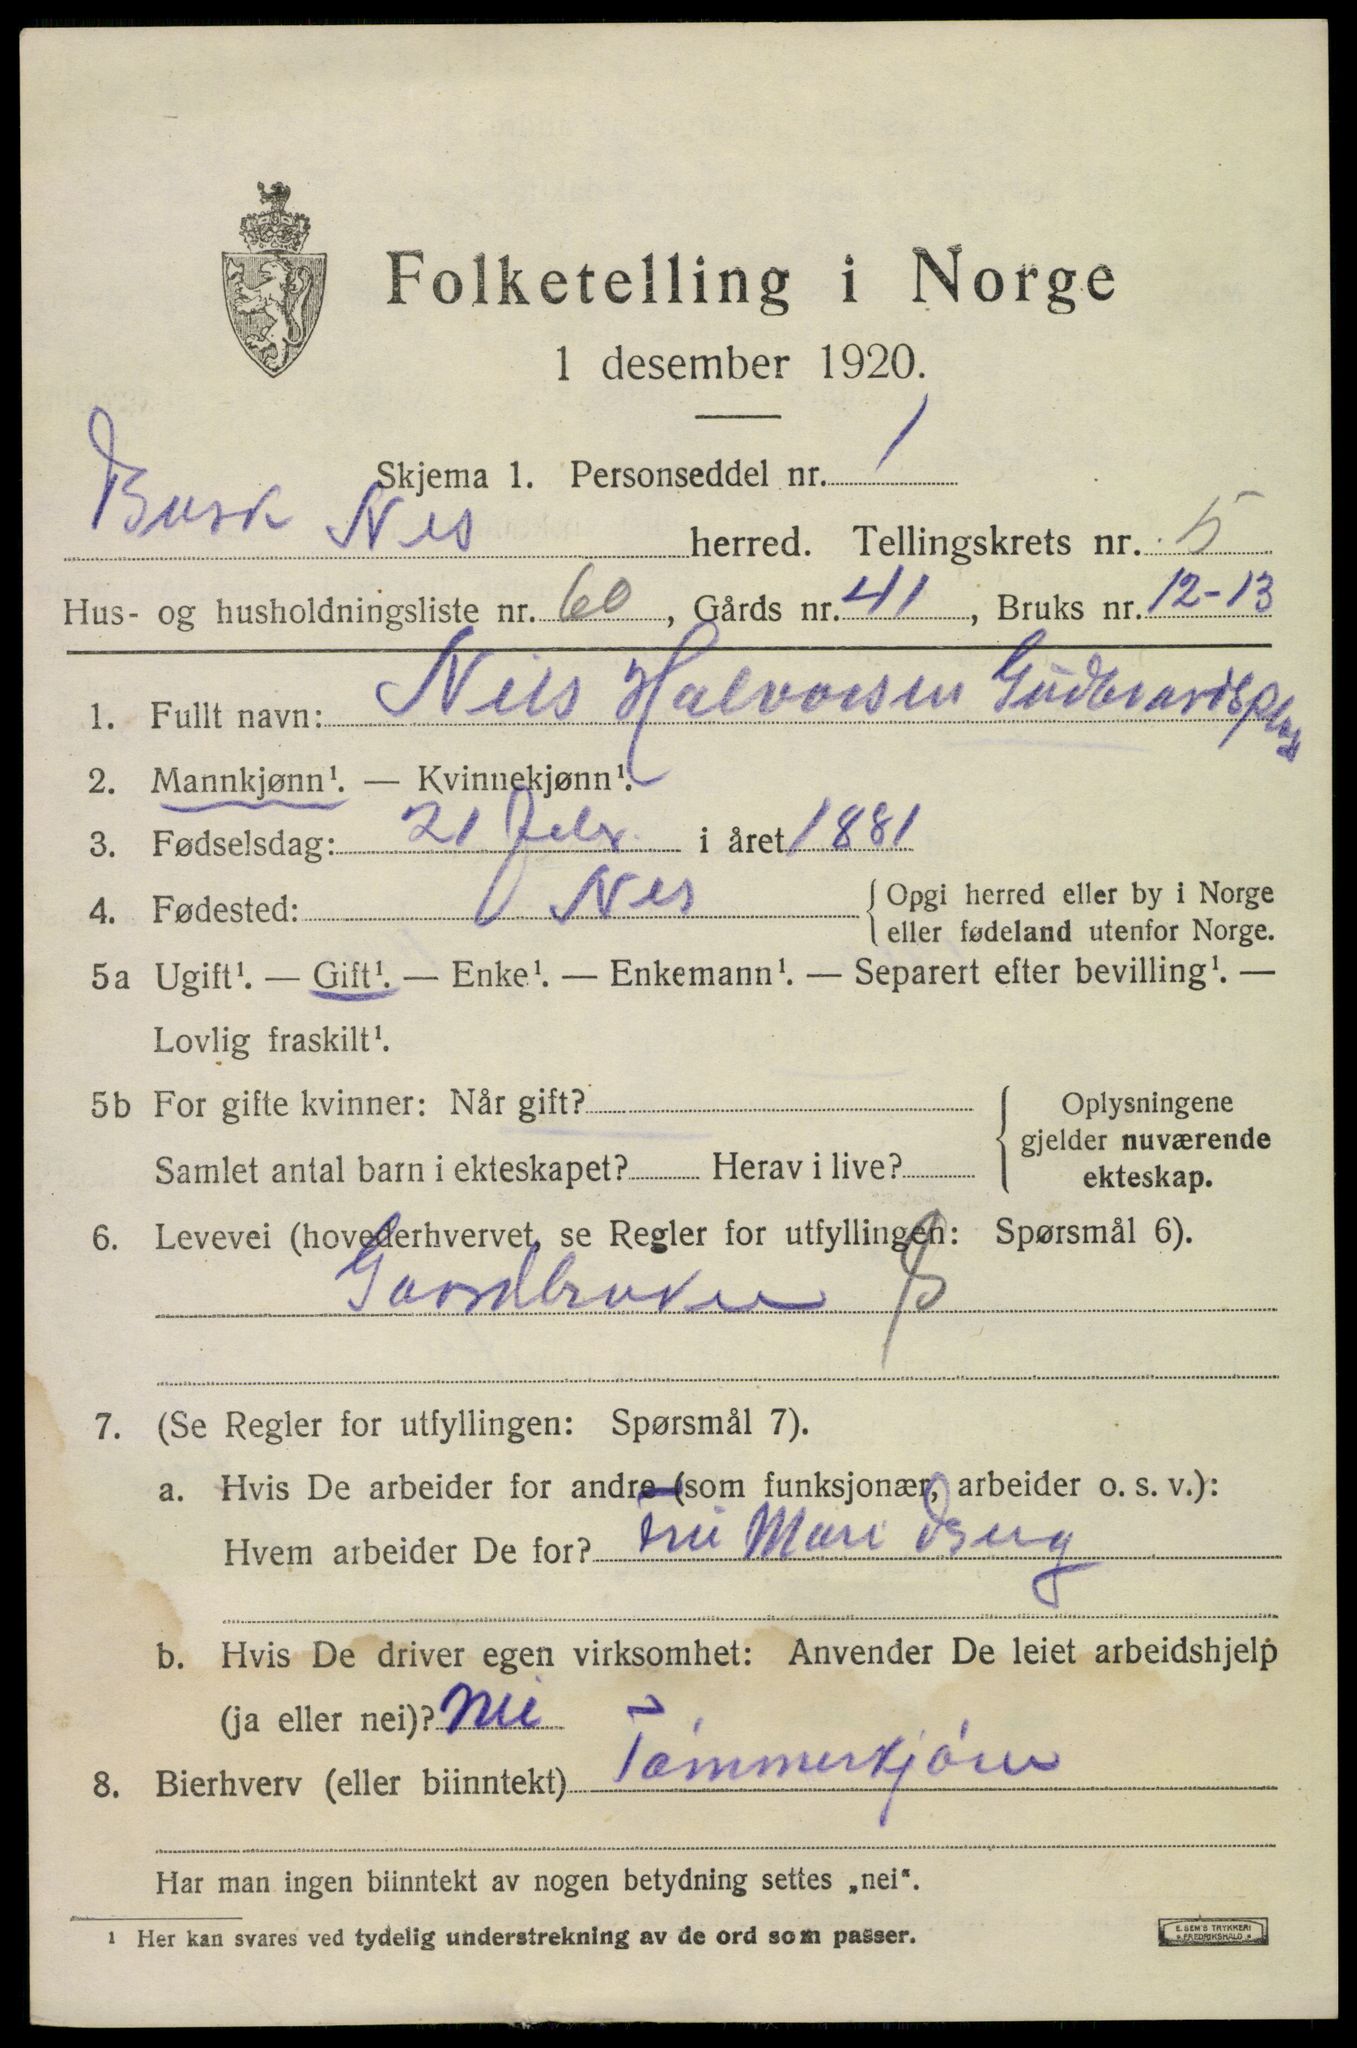 Folketelling i Norge
1 desember 1920.
Skjema 1. Personseddel nr. 1
Busk Nes herred. Tellingskrets nr. 5
Hus- og husholdningsliste nr. 60, Gårds nr. 41, Bruks nr. 12-13
1. Fullt navn: Nils Halvorsen Gudbrandsplas
2. Mannkjønn¹. — Kvinnekjønn¹.
3. Fødselsdag: 21 i året 1881
4. Fødested: Nes {Opgi herred eller by i Norge
eller fødeland utenfor Norge.
5a Ugift¹. — Gift¹. — Enke¹. — Enkemann¹. — Separert efter bevilling¹. —
Lovlig fraskilt¹.
5b For gifte kvinner: Når gift?
Samlet antal barn i ekteskapet? Herav i live?
Oplysningene
gjelder nuværende
ekteskap.
6. Levevei (hovederhvervet, se Regler for utfyllingen: Spørsmål 6).
Gaardbruker
7. (Se Regler for utfyllingen: Spørsmål 7).
a. Hvis De arbeider for andre (som funksjonær, arbeider o. s. v.):
Hvem arbeider De for? Mari Berg
b. Hvis De driver egen virksomhet: Anvender De leiet arbeidshjelp
(ja eller nei)? nei
8. Bierhverv (eller biinntekt) Tømmerkjører
Har man ingen biinntekt av nogen betydning settes „nei“.
¹ Her kan svares ved tydelig understrekning av de ord som passer.
E. SEM'S TRYKKERI
FREDRIKSHALD